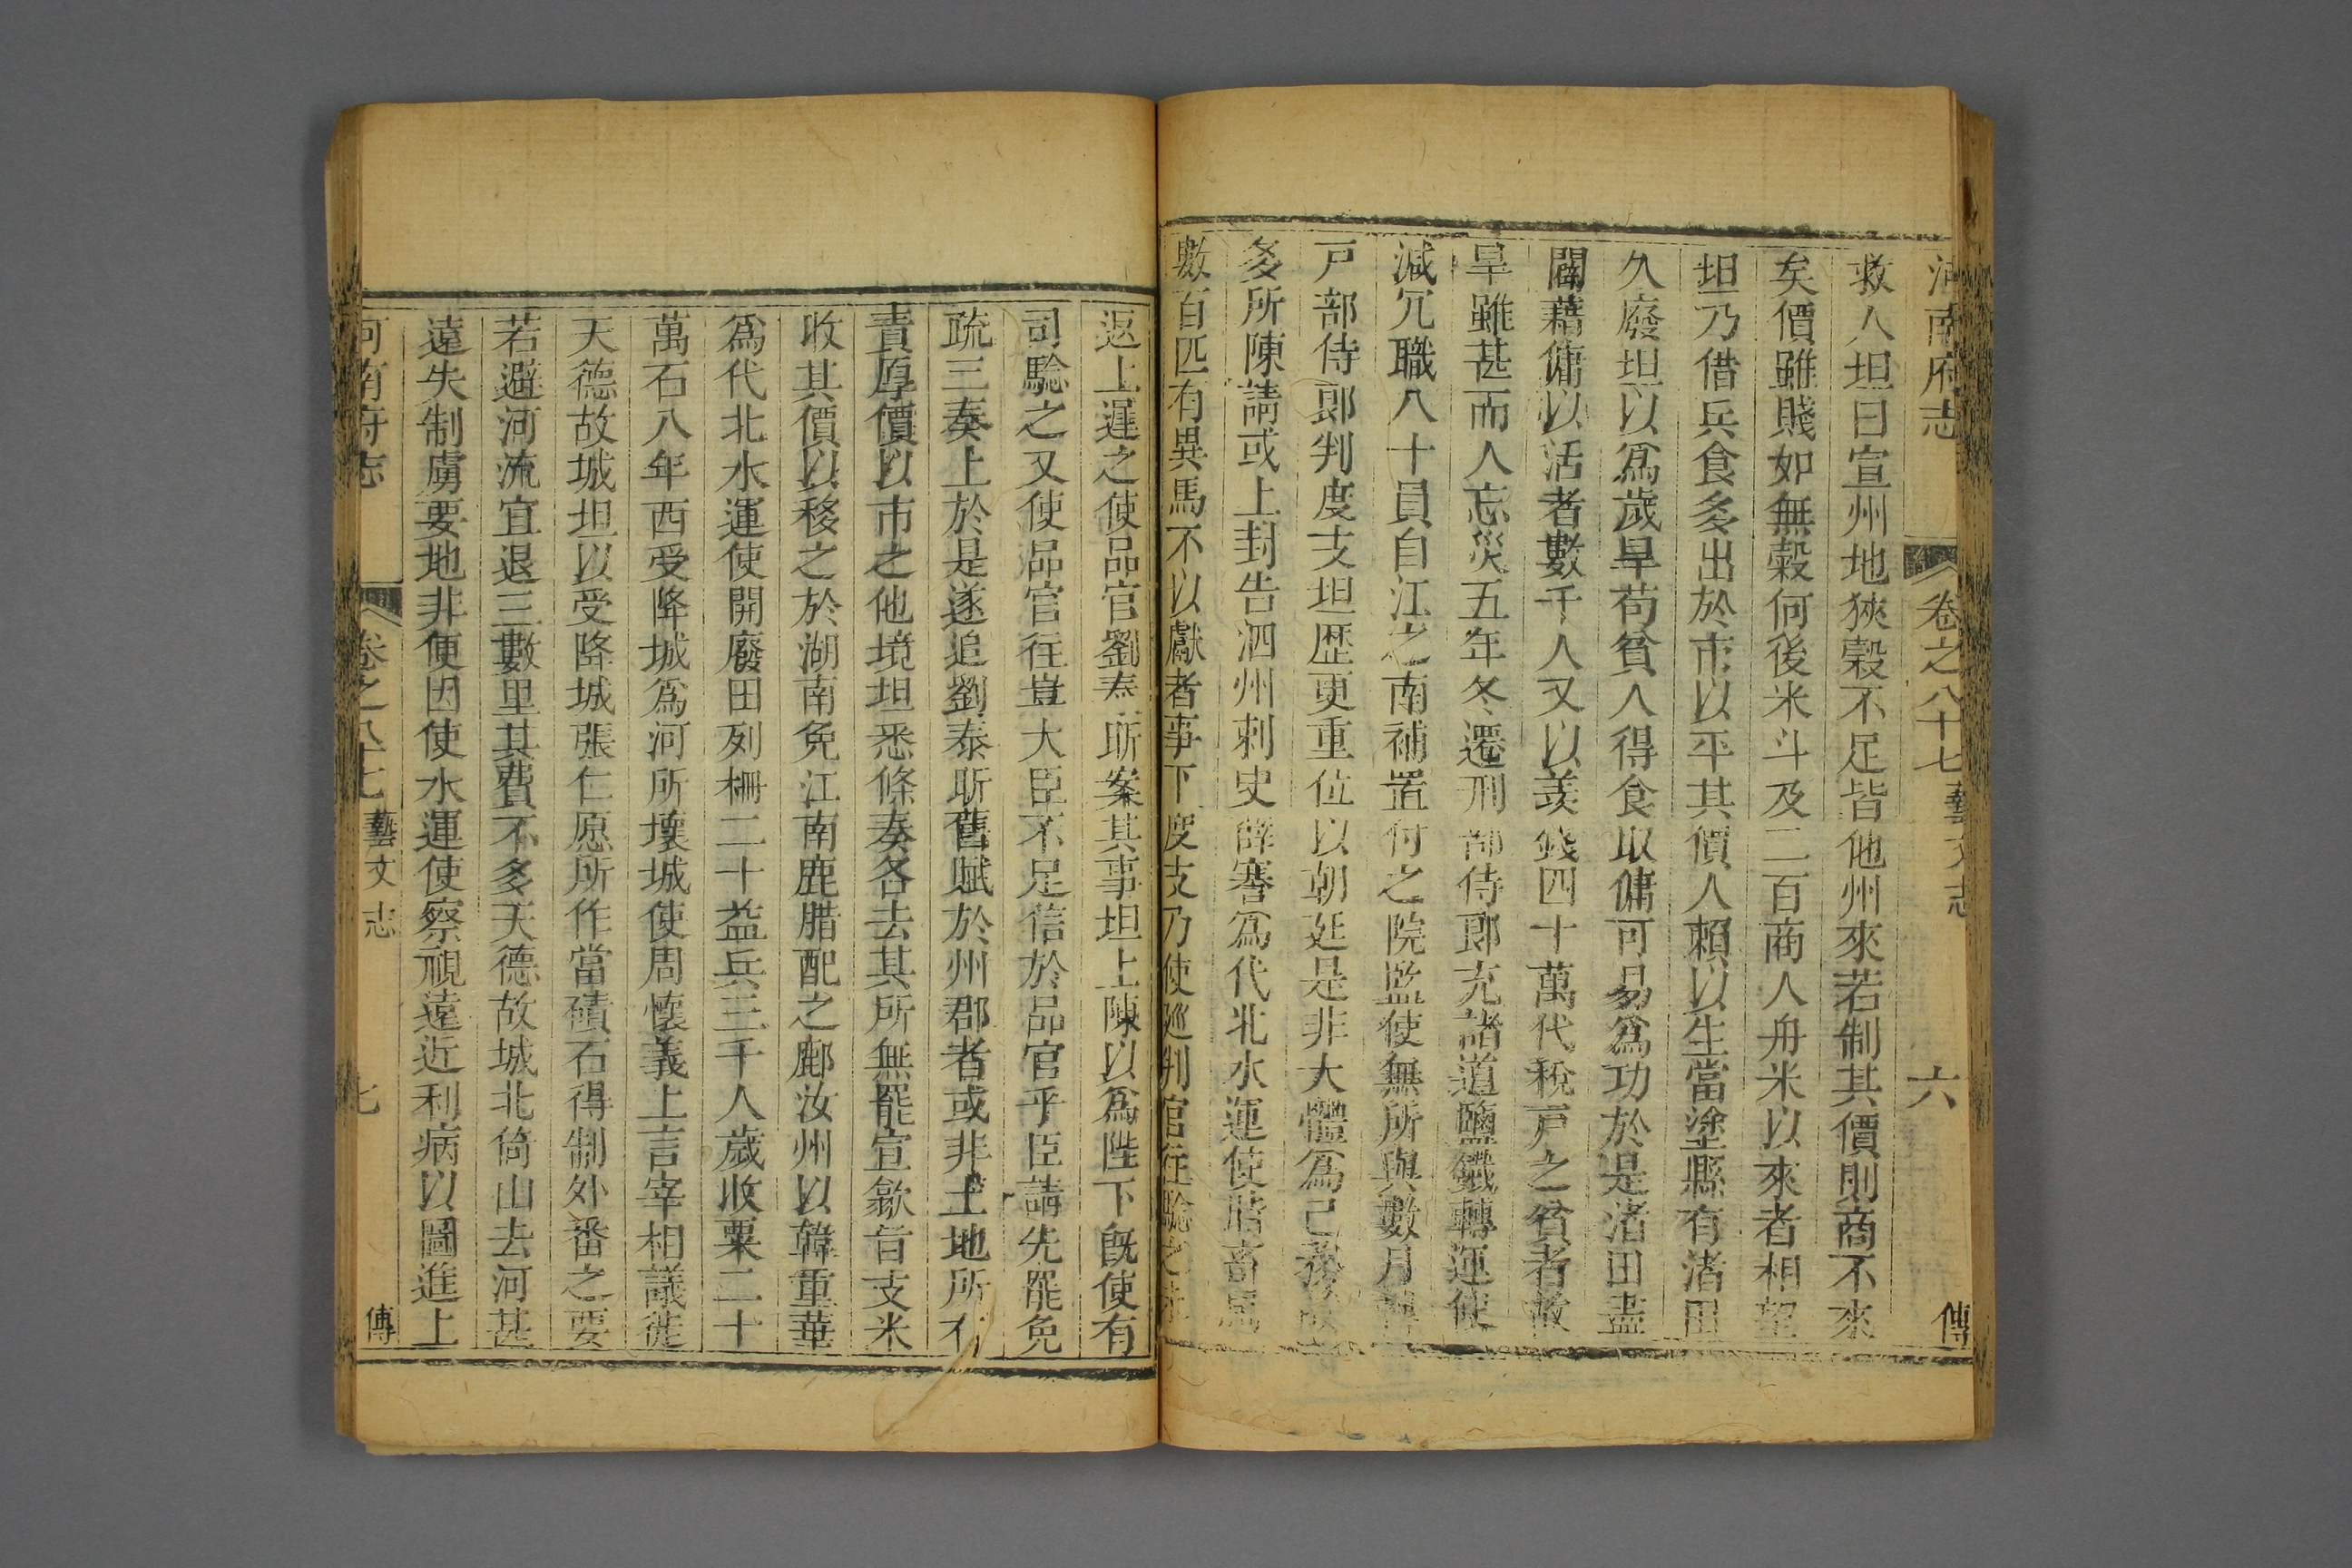 河南府志 卷之八十七 藝文志 六 傳
救人坦曰宣州地狹穀不足皆他州來若制其價則商不來
矣價雖賤如無穀何後米斗及二百商人舟米以來者相望
坦乃借兵食多出於市以平其價人賴以生當塗縣有渚田
久廢坦以爲歲旱苟貧人得食取傭可易爲功於是渚田盡
闢藉傭以活者數千人又以羨錢四十萬代稅戸之貧者故
旱雖甚而人忘災五年冬遷刑部侍郎充諸道鹽鐵轉運使
減冗職八十員自江之南補置付之院監使無所與數月轉
戸部侍郎判度支坦歷更重位以朝廷是非大體爲己務故
多所陳請或上封告泗州刺史薛謇爲代北水運使時畜馬
數百匹有異馬不以獻者事下度支乃使巡判官往驗之未
返上遲之使品官劉泰昕案其事坦上陳以爲陛下旣使有
司驗之又使品官往豈大臣不足信於品官乎臣請先罷免
疏三奏上於是遂追劉泰昕舊賦於州郡者或非土地所有
責厚價以市之他境坦悉條奏各去其所無罷宣歙旨支米
收其價以移之於湖南免江南鹿腊配之鄜汝州以韓重華
爲代北水運使開廢田列柵二十益兵三千人歲收粟二十
萬石八年西受降城爲河所壞城使周懷義上言宰相議徙
天德故城坦以受降城張仁愿所作當磧石得制外番之要
若避河流宜退三數里其費不多天德故城北倚山去河甚
遠失制虜要地非便因使水運使察視遠近利病以圖進上
河南府志 卷之八十七 藝文志 七 傳